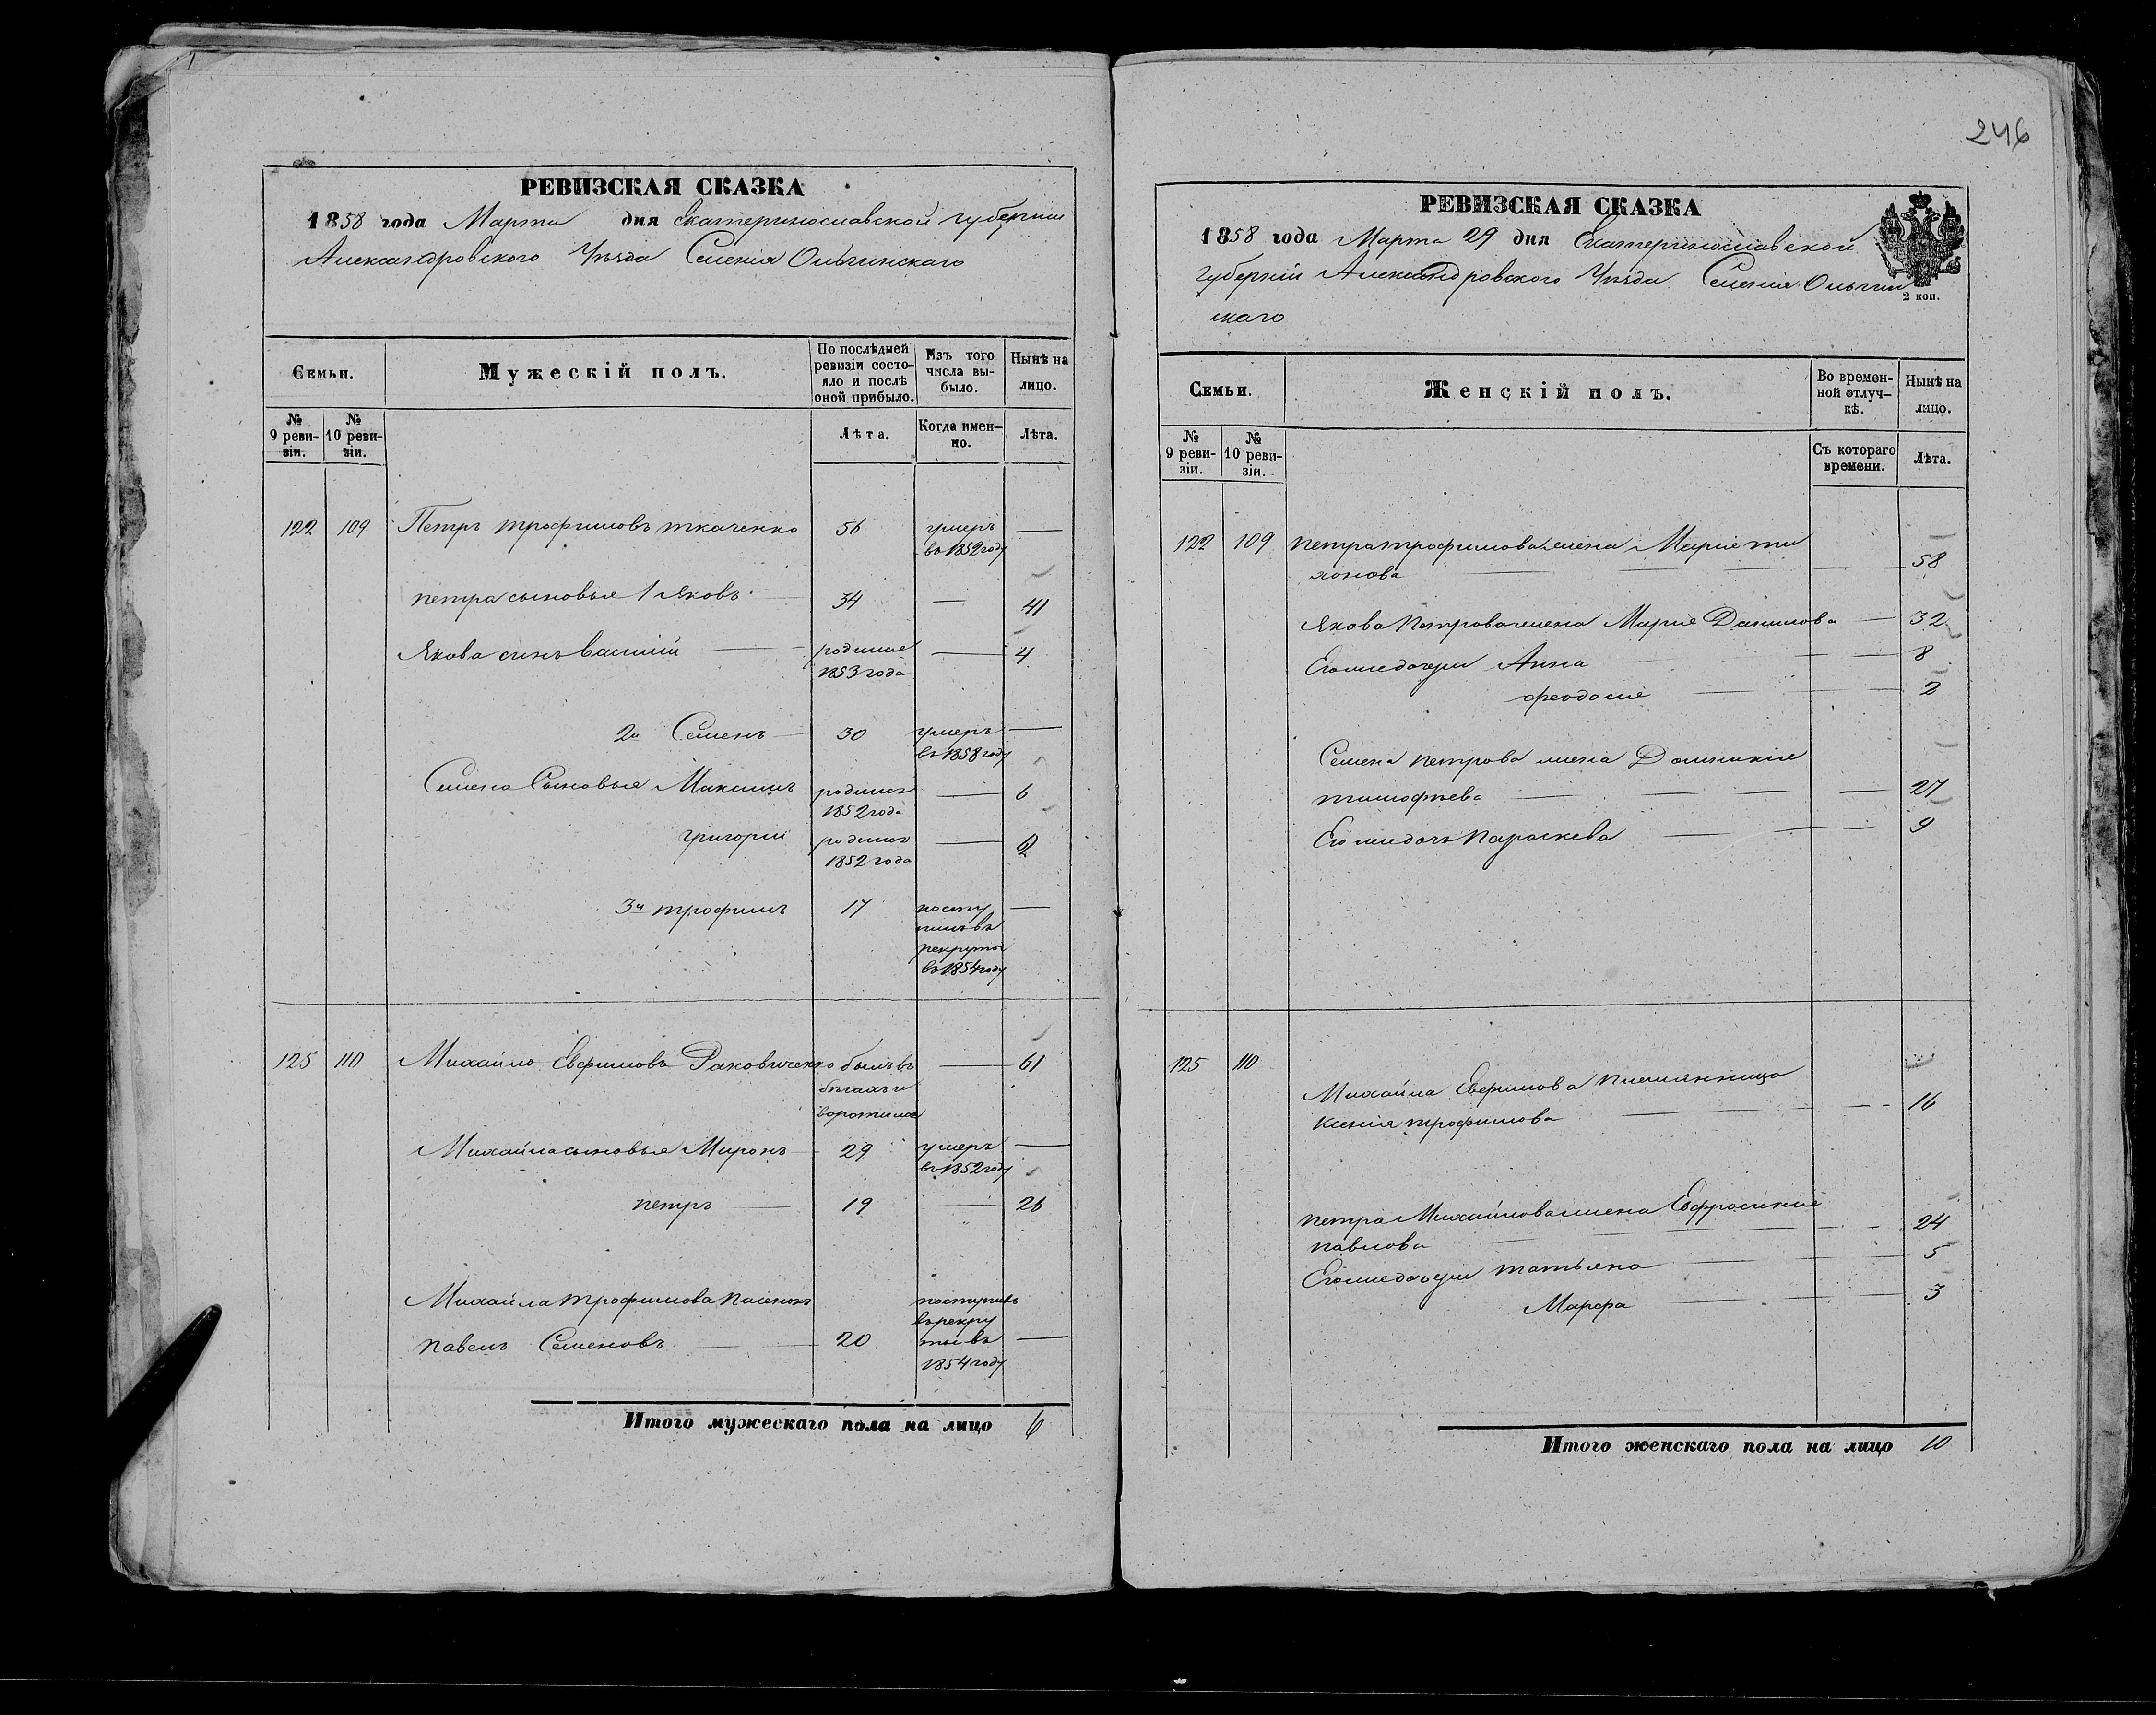 РЕВИЗСКАЯ СКАЗКА
1858 года Марта дня Екатеринославской губерніи
Александровского Уѣзда Селенія Ольгинскаго
Семьи.
Мужескій полъ.
По послѣдней ревизіи состояло и послѣ оной прибыло.
Изъ того числа выбыло.
Нынѣ на лицо.
№ 9 ревизіи.
№ 10 ревизіи.
Лѣта.
Когда именно.
Лѣта.
122 109 Петръ трофимовъ ткаченко 56 умеръ —
въ 1852 году
петра сыновья 1 Яковъ 34 — 41
Якова сынъ Василій родился — 4
1853 года
2й Семенъ 30 умеръ —
въ 1858 году
Семена Сыновья Максимъ родился — 6
1852 года
григорій родился —
1852 года
3й трофимъ 17 посту —
пилъ въ
рекруты
въ 1854 году
125 110 Михайло Евфимовъ Раковиченко былъ въ — 61
бѣгахъ и
воротился
Михайла сыновья Миронъ 29 умеръ —
въ 1852 году
петръ 19 — 26
Михайла трофимова поступилъ
въ рекру
павелъ Семеновъ — 20 ты въ —
1854 году
Итого мужескаго пола на лицо 6
246
РЕВИЗСКАЯ СКАЗКА
1858 года Марта 29 дня Екатеринославской
губерніи Александровского Уѣзда Селенія Ольгин
скаго
2 коп.
Семьи.
Женскій полъ.
Во временной отлучкѣ.
Нынѣ на лицо.
№ 9 ревизіи.
№ 10 ревизіи.
Съ котораго времени.
Лѣта.
122 109 петра трофимова жена Маріе ти
хонова — 58
Якова Петрова жена Маріе Данилова — 32
Его же дочери Анна — 8
феодосіе — 2
Семена петрова жена Домникіе
тимофѣева — 27
Его же дочь Параскева — 9
125 110
Михайла Евфимова племянница
Ксенія трофимова — 16
петра Михайлова жена Евфросиние
павлова — 24
Его же дочери татьяна — 5
Марфа — 3
Итого женскаго пола на лицо 10